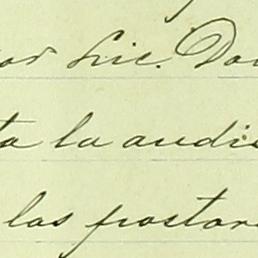 or Lic. Do
ta la audi
las postor